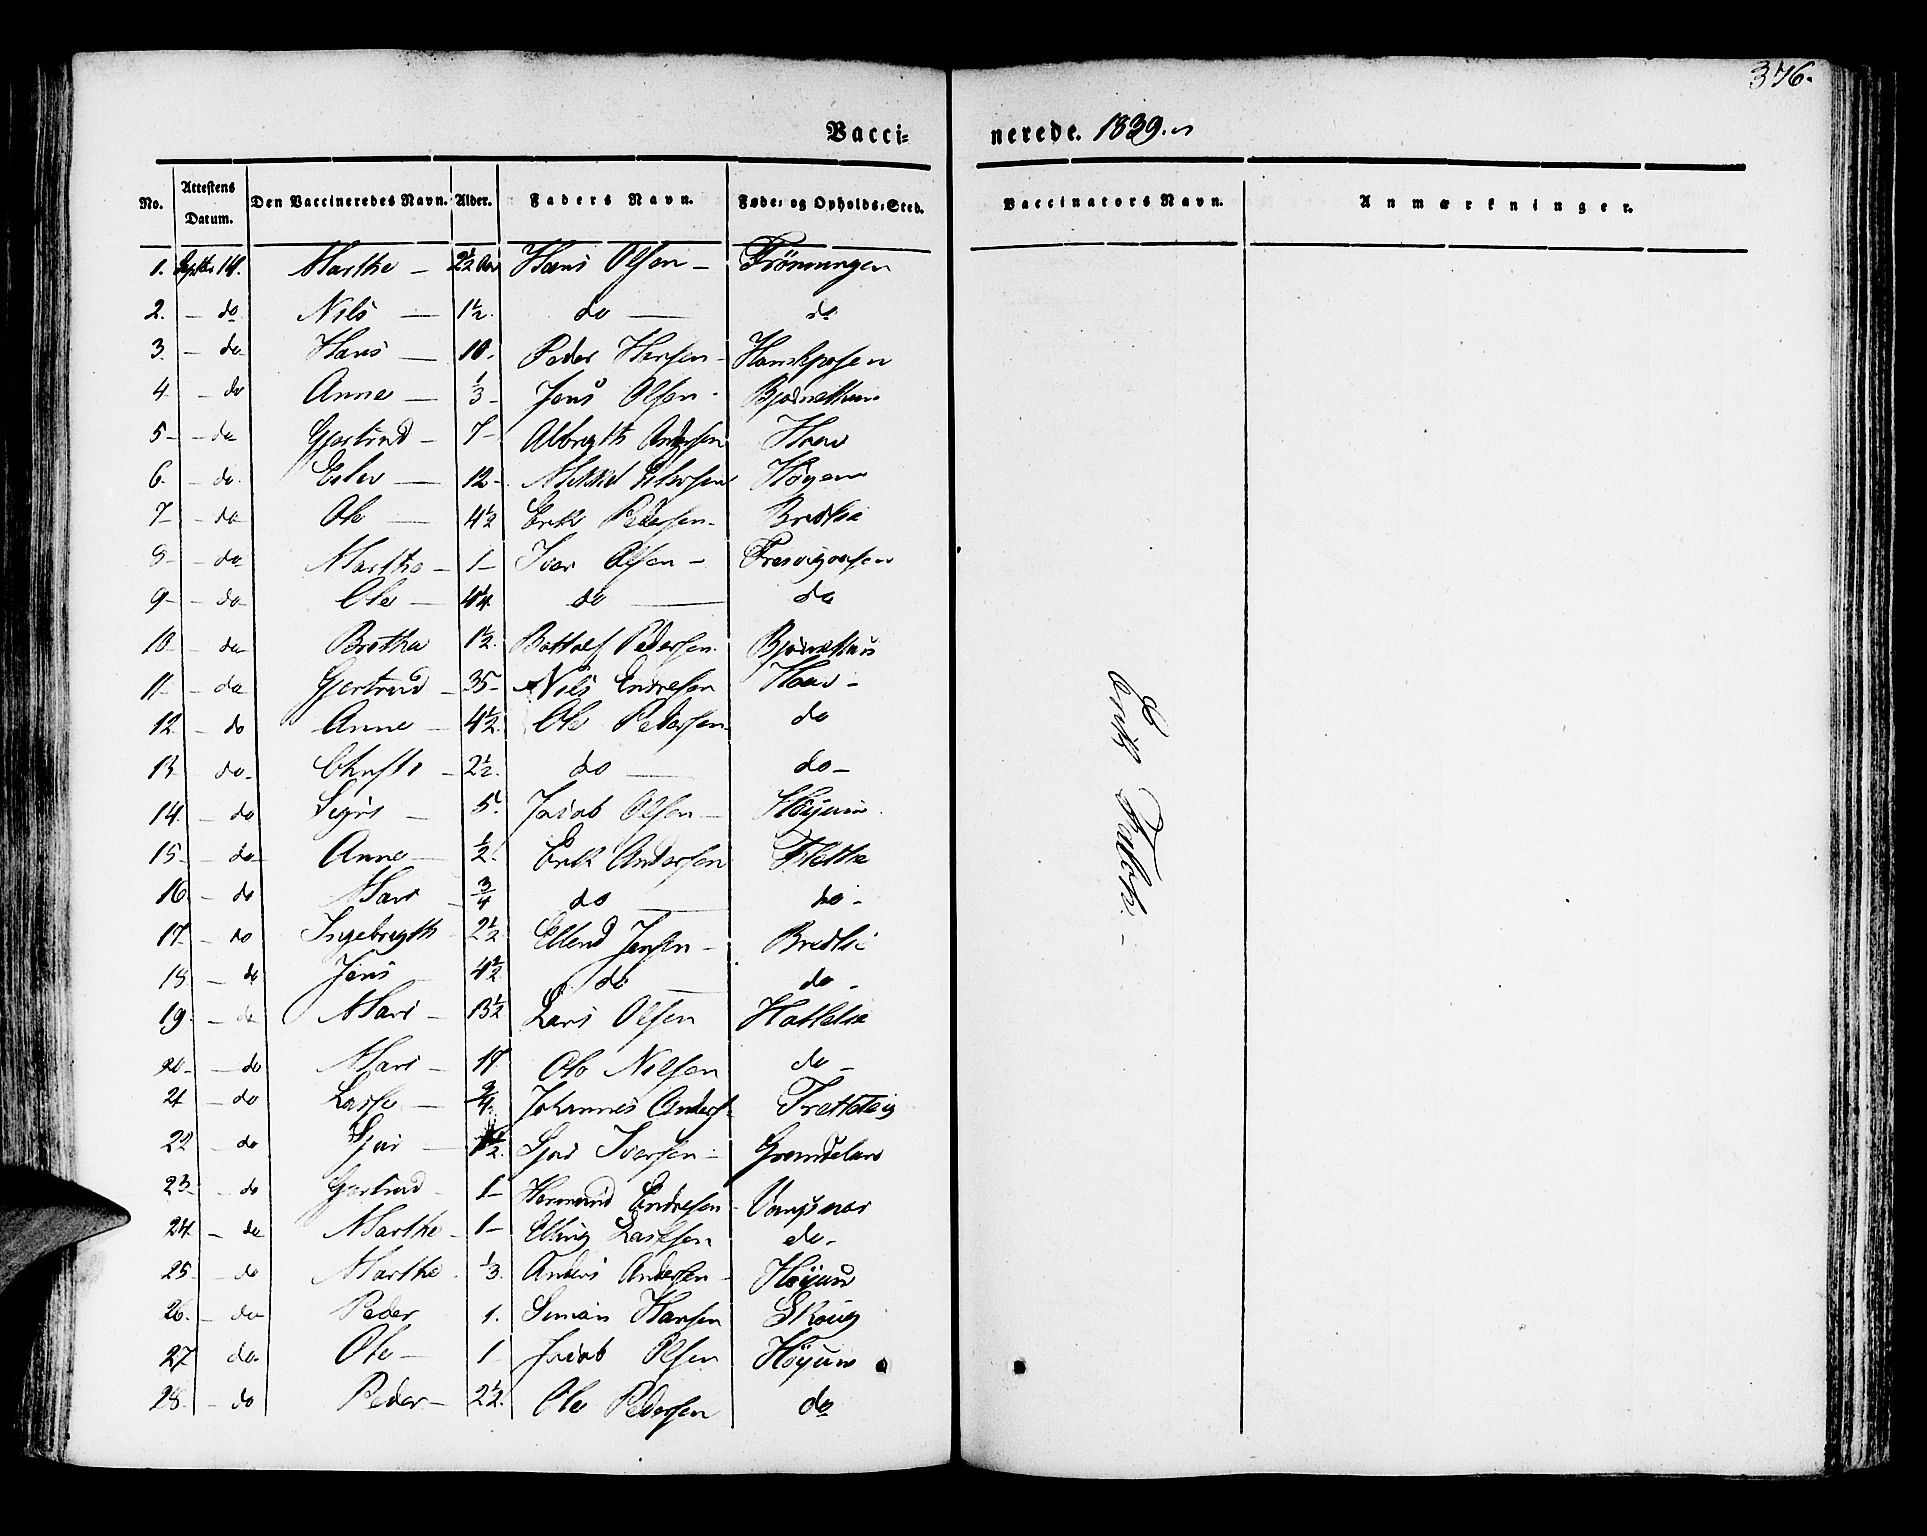 376.
Vacci= nerede. 1839.
No. Attestens Datum. Den Vaccineredes Navn. Alder. Faders Navn. Føde= og Opholds=Sted. Vaccinators Navn. Anmærkninger.
1. Septbr 14. Marthe — 2½ Aar Hans Olsen — Frönningen
2. — do Nils — 1½. do — do
3. — do Hans — 10. Peder Hansen —
4 — do Anne — ⅓ — Jens Olsen -
5 — do Gjertrud — 7 — Albregth Andersen
6. — do. — 12 —
7 — do Ole — 4½ Erik Pedersen — Bredlie
8 — do Marthe — 1 — Iver Olsen —
9 — do — Ole — 4¼. do — do
10 — do Brethe 1½. Bottolf Pedersen.
11 — do Gjertrud — 35 — Nils Endresen
12 — do Anne — 4½ Ole Pedersen — do
13 do — — 2½. do — do —
14. — do — 5. Jacob Olsen — Höyum
15 — do Anne — ½. Erik Andersen
16 — do Mari ¾ do do —
17. — do Ingebregth 2½ Ellend Jensen — Bredlie
18 — do Jens 4½ do — do —
19. — do Mari — 13½ Lars Olsen Hatlelie
20 — do Mari — 17 Ole Nilsen do —
21 — do Lasse — ¾. Johannes Anders.
22 — do Sjur — Sjur Iversen —
23 — do Gjertrud 1 — Hermund Endresen — Vangsnæs
24 — do Marthe — 1 — Elling Lassesen do —
25 — do Marthe ⅓. Anders Andersen — Höyum
26. — do Peder 1. Simon Hansen
27 do. Ole — 1 Jacob Olsen Höyum
28 — do Peder — 2½. Ole Pedersen do
Erik